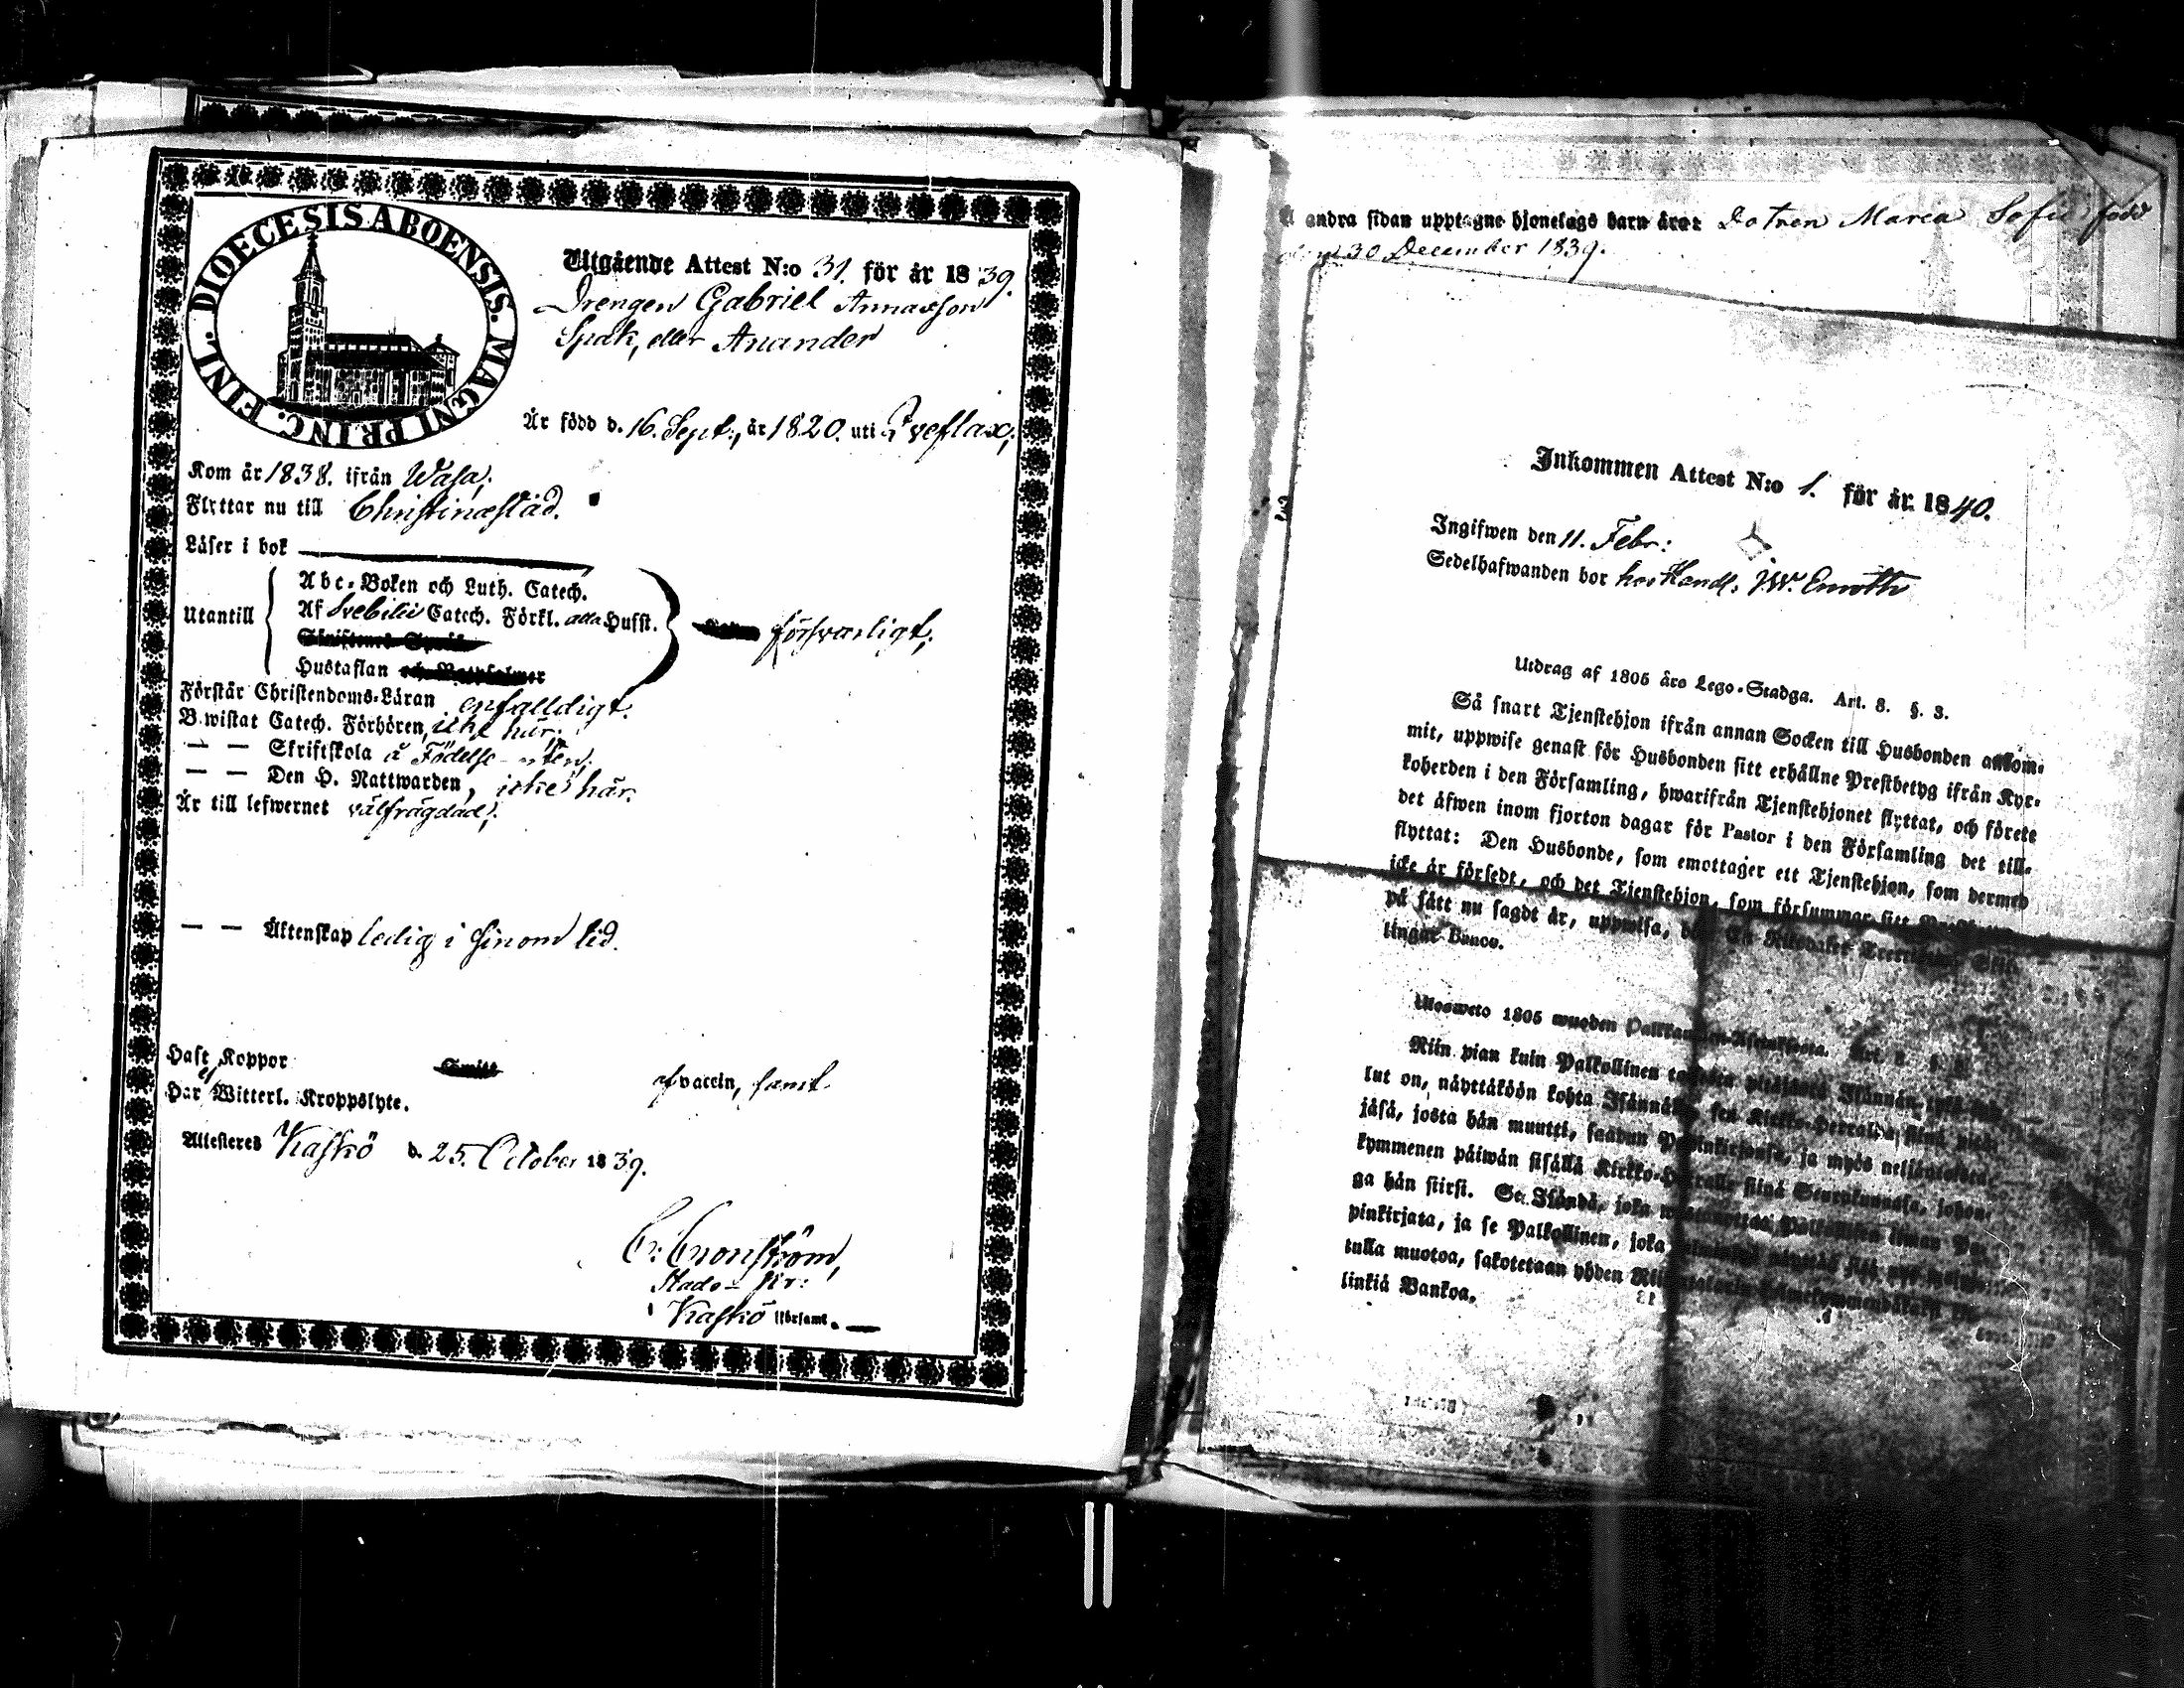 DIOECESIS ABOENSIS. MAGNI PRINC. FINL.
Utgående Attest N:o 31. för år 1839.
Drengen Gabriel Annasson
Spak, eller Anander
Är född d. 16. Sept:, år 1820. uti Qveflax;
Kom år 1838. ifrån Wasa;
Flyttar nu till Christinæstad.
Läser i bok
Abc-Boken och Luth. Catech.
Utantill Af Svebilii Catech. Förkl. alla Hufst. försvarligt;
Hustaflan
Förstår Christendoms-Läran enfalldigt.
Bewistat Catech. Förhören, icke här;
— — Skriftskola å Födelse-orten;
— — Den H. Nattwarden, icke här;
Är till lefwernet välfrägdad;
— — Äktenskap ledig i sinom tid.
Haft Koppor af vaccin, samt
Har ej Witterl. Kroppslyte.
Attesteras Kaskö d. 25. October 1839.
C: Cronström,
Kaskö församl.
å andra sidan upptagne hjonelags barn äro: Dotren Maria Sofie född
den 30 December 1839.
Inkommen Attest N:o 1. för år 1840.
Ingifwen den 11. Febr:
Sedelhafwanden bor hos Handl. J.W. Emoth
Utdrag af 1805 års Lego-Stadga. Art. 8. §. 3.
Så snart Tjenstehjon ifrån annan Socken till Husbonden ankom-
mit, uppwise genast för Husbonden sitt erhållne Prestbetyg ifrån Kyr-
koherden i den Församling, hwarifrån Tjenstehjonet flyttat, och förete
det äfwen inom fjorton dagar för Pastor i den Församling det till-
flyttat: Den Husbonde, som emottager ett Tjenstehjon, som dermed
icke är försedt, och det Tjenstehjon, som försummar sitt
på sätt nu sagdt är, uppwisa, En Riksdaler
lingar Banco.
Ulosweto 1805 wuoden Art.
Niin pian kuin Palkollinen
lut on, näyttäköön kohta Isännälle sen Kirkko-Herralta siinä
jäsä, josta hän muutti, saadun ja myös neljäntoista
kymmenen päiwän sisällä Kirkko-Herralle siinä Seurakunnasa, johon-
ga hän siirsi. Se Isändä, joka Palkollisen ilman
pinkirjata, ja se Palkollinen, joka
tulla muotoa, sakotetaan yhden
linkiä Bankoa.